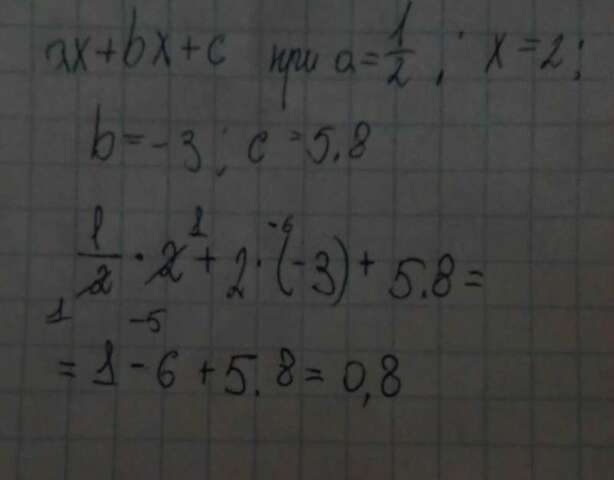 ax+bx+c при a=1/2; x=2;
b=-3; c=5.8
1/2 · 2 1 + 2 · (-3) -6 + 5.8 =
1 -5
= 1 - 6 + 5.8 = 0,8